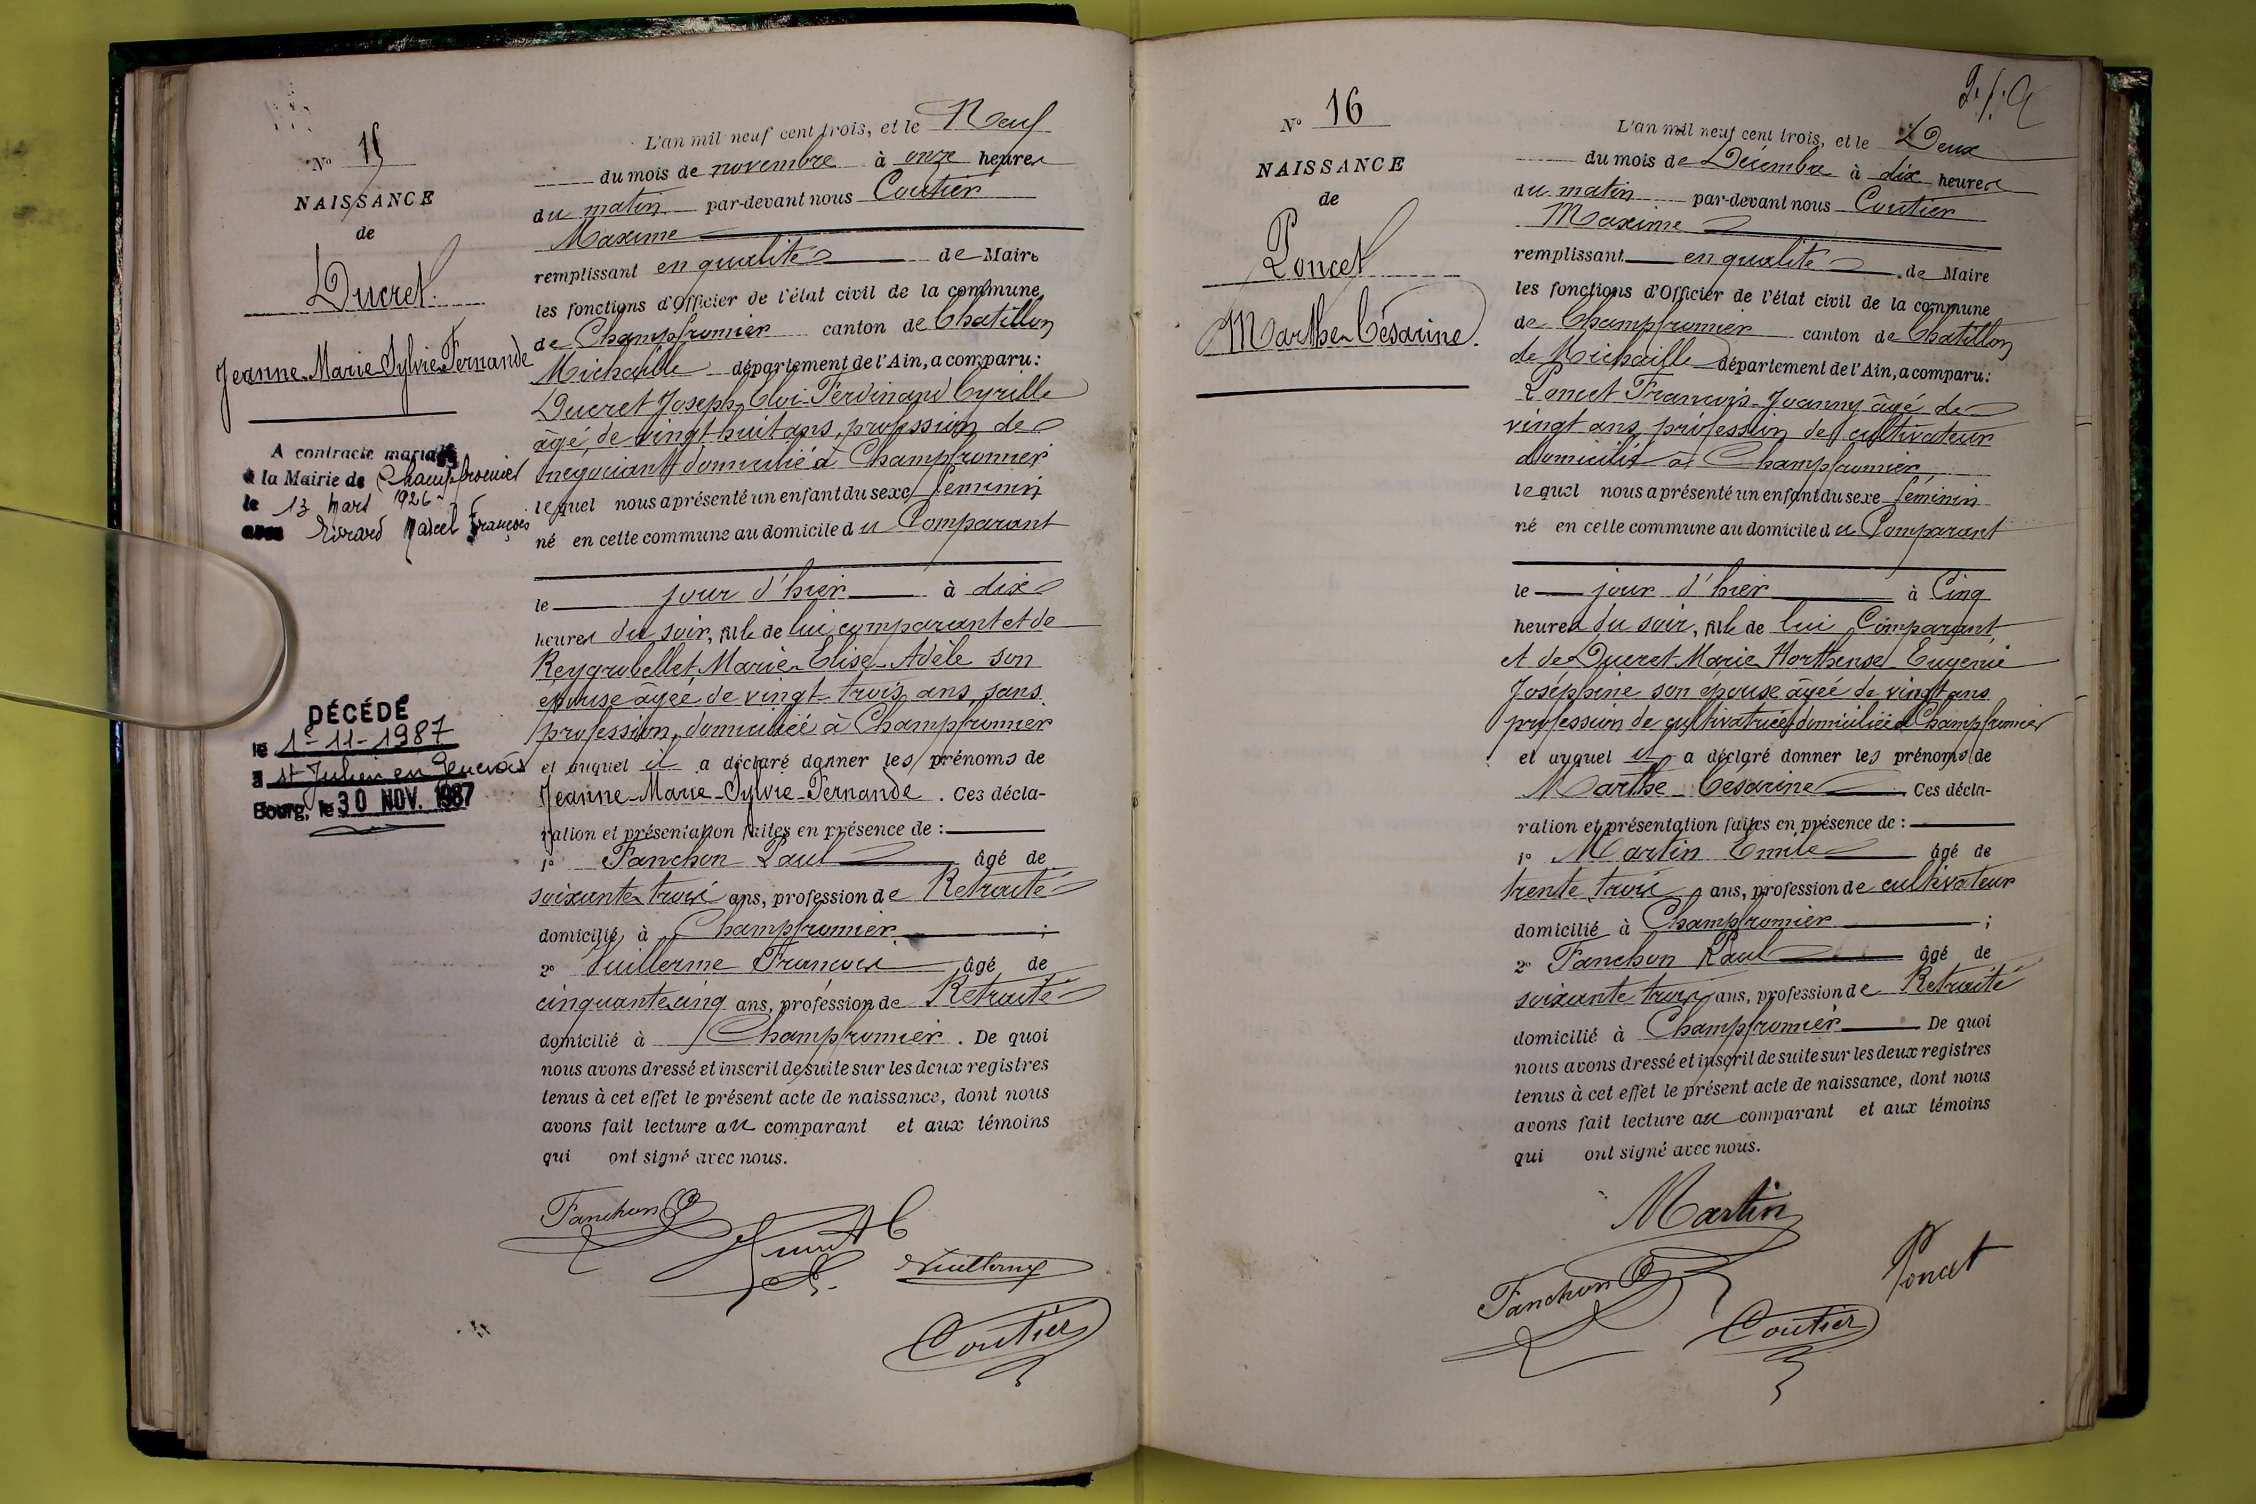 N° 15
NAISSANCE
de
Ducret
Jeanne-Marie Sylvie-Fernande
A contracté mariage
à la Mairie de Champfromier
le 13 Mars 1926
avec Marcel François
DÉCÉDÉ
le 1-11-1987
à St Julien en Genevois
Bourg, le 30 NOV. 1987
L'an mil neuf cent trois, et le Neuf
du mois de novembre à onze heures
du matin par-devant nous Coutier
Maxime
remplissant en qualité de Maire
les fonctions d'Officier de l'état civil de la commune
de Champfromier canton de Chatillon
Michaille département de l'Ain, a comparu:
Ducret Joseph Eloi-Ferdinand Cyrille
âgé de vingt huit ans, profession de
negociant domicilié à Champfromier
lequel nous a présenté un enfant du sexe féminin
né en cette commune au domicile du Comparant
le jour d'hier à dix
heures du soir, fille de lui comparant et de
Reygrobellet Marie-Elise-Adèle son
épouse âgée de vingt-trois ans, sans
profession, domiciliée à Champfromier
et auquel il a déclaré donner les prénoms de
Jeanne-Marie-Sylvie-Fernande. Ces décla-
ration et présentation faites en présence de :
1° Fanchon Paul âgé de
soixante trois ans, profession de Retraité
domicilié à Champfromier ;
2° Vuillerme François âgé de
cinquante cinq ans, profession de Retraité
domicilié à Champfromier. De quoi
nous avons dressé et inscrit de suite sur les deux registres
tenus à cet effet le présent acte de naissance, dont nous
avons fait lecture au comparant et aux témoins
qui ont signé avec nous.
Fanchon
Vuillerme
Coutier
N° 16
NAISSANCE
de
Poncet
Marthe-Césarine.
L'an mil neuf cent trois, et le Deux
du mois de Décembre à dix heures
du matin par-devant nous Coutier
Maxime
remplissant en qualité de Maire
les fonctions d'Officier de l'état civil de la commune
de Champfromier canton de Chatillon
de Michaille département de l'Ain, a comparu:
Poncet François-Joanny âgé de
vingt ans profession de cultivateur
domicilié à Champfromier
lequel nous a présenté un enfant du sexe féminin
né en cette commune au domicile du Comparant
le jour d'hier à Cinq
heures du soir, fille de lui Comparant
et de Ducret Marie Horthense Eugénie
Joséphine son épouse âgée de vingt ans
profession de cultivatrice domiciliée à Champfromier
et auquel il a déclaré donner les prénoms de
Marthe-Cesarine Ces décla-
ration et présentation faites en présence de :
1° Martin Emile âgé de
trente trois ans, profession de cultivateur
domicilié à Champfromier ;
2° Fanchon Paul âgé de
soixante trois ans, profession de Retraité
domicilié à Champfromier De quoi
nous avons dressé et inscrit de suite sur les deux registres
tenus à cet effet le présent acte de naissance, dont nous
avons fait lecture au comparant et aux témoins
qui ont signé avec nous.
Martin
Fanchon
Poncet
Coutier